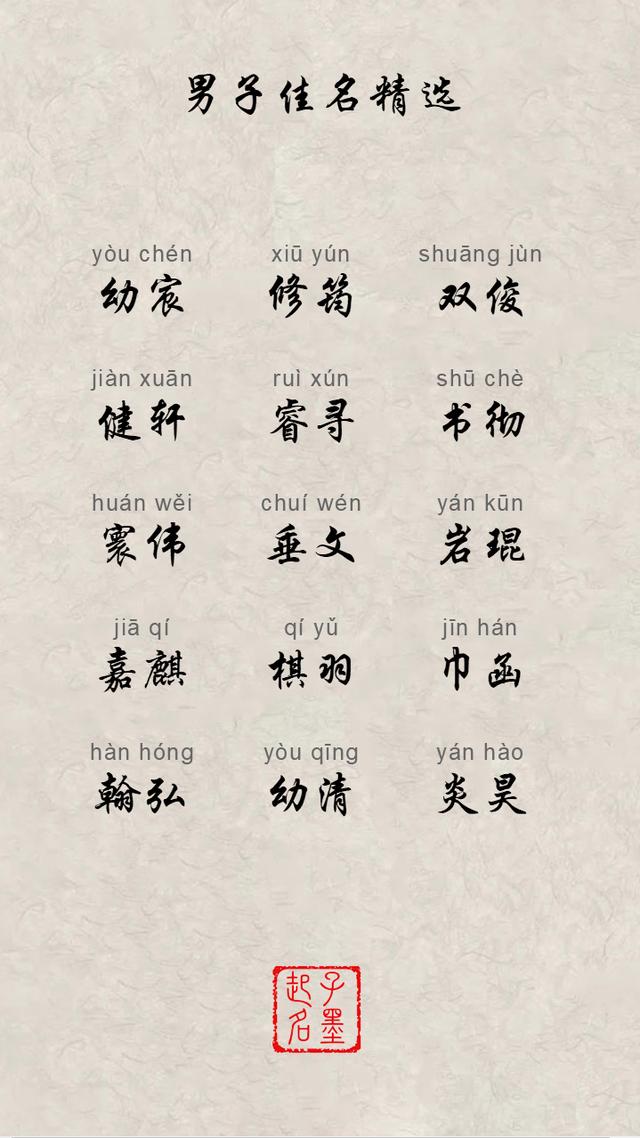 男子佳名精选
yòu chén xiū yún shuāng jùn
幼宸 修筠 双俊
jiàn xuān ruì xún shū chè
健轩 睿寻 书彻
huán wěi chuí wén yán kūn
寰伟 垂文 岩琨
jiā qí qí yǔ jīn hán
嘉麒 棋羽 巾函
hàn hóng yòu qīng yán hào
翰弘 幼清 炎昊
子墨
起名